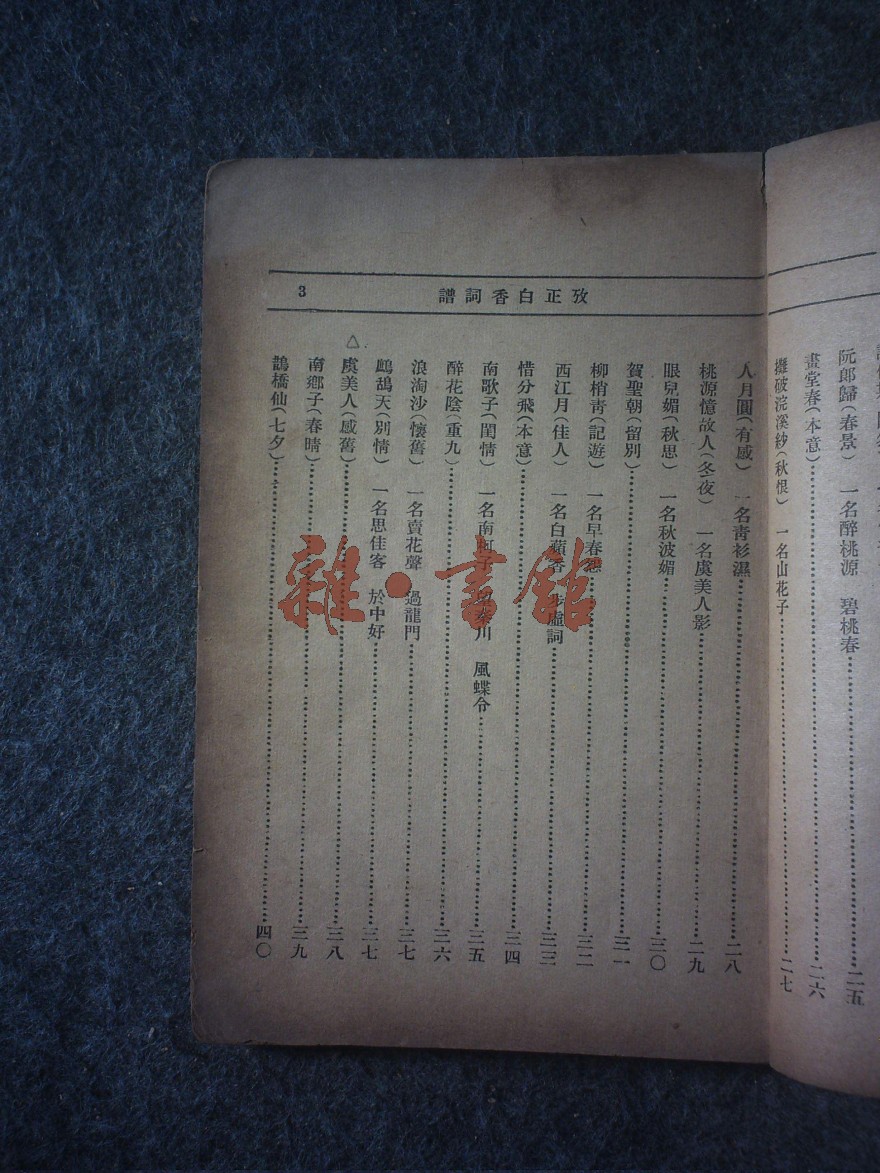 阮郎歸（春景） 一名醉桃源 碧桃春……二五
畫堂春（本意）……二六
攤破浣溪紗（秋恨） 一名山花子……二七
攷正白香詞譜 3
人月圓（有感） 一名青衫濕……二八
桃源憶故人（冬夜） 一名虞美人影……二九
眼兒媚（秋思） 一名秋波媚……三〇
賀聖朝（留別）……三一
柳梢青（記遊） 一名早春怨……三二
西江月（佳人） 一名白蘋香 步虛詞……三三
惜分飛（本意）……三四
南歌子（閨情） 一名南柯子 秦川 風蝶令……三五
醉花陰（重九）……三六
浪淘沙（懷舊） 一名賣花聲 過龍門……三七
鷓鴣天（別情） 一名思佳客 於中好……三七
△虞美人（感舊）……三八
南鄉子（春晴）……三九
鵲橋仙（七夕）……四〇
雜·書館